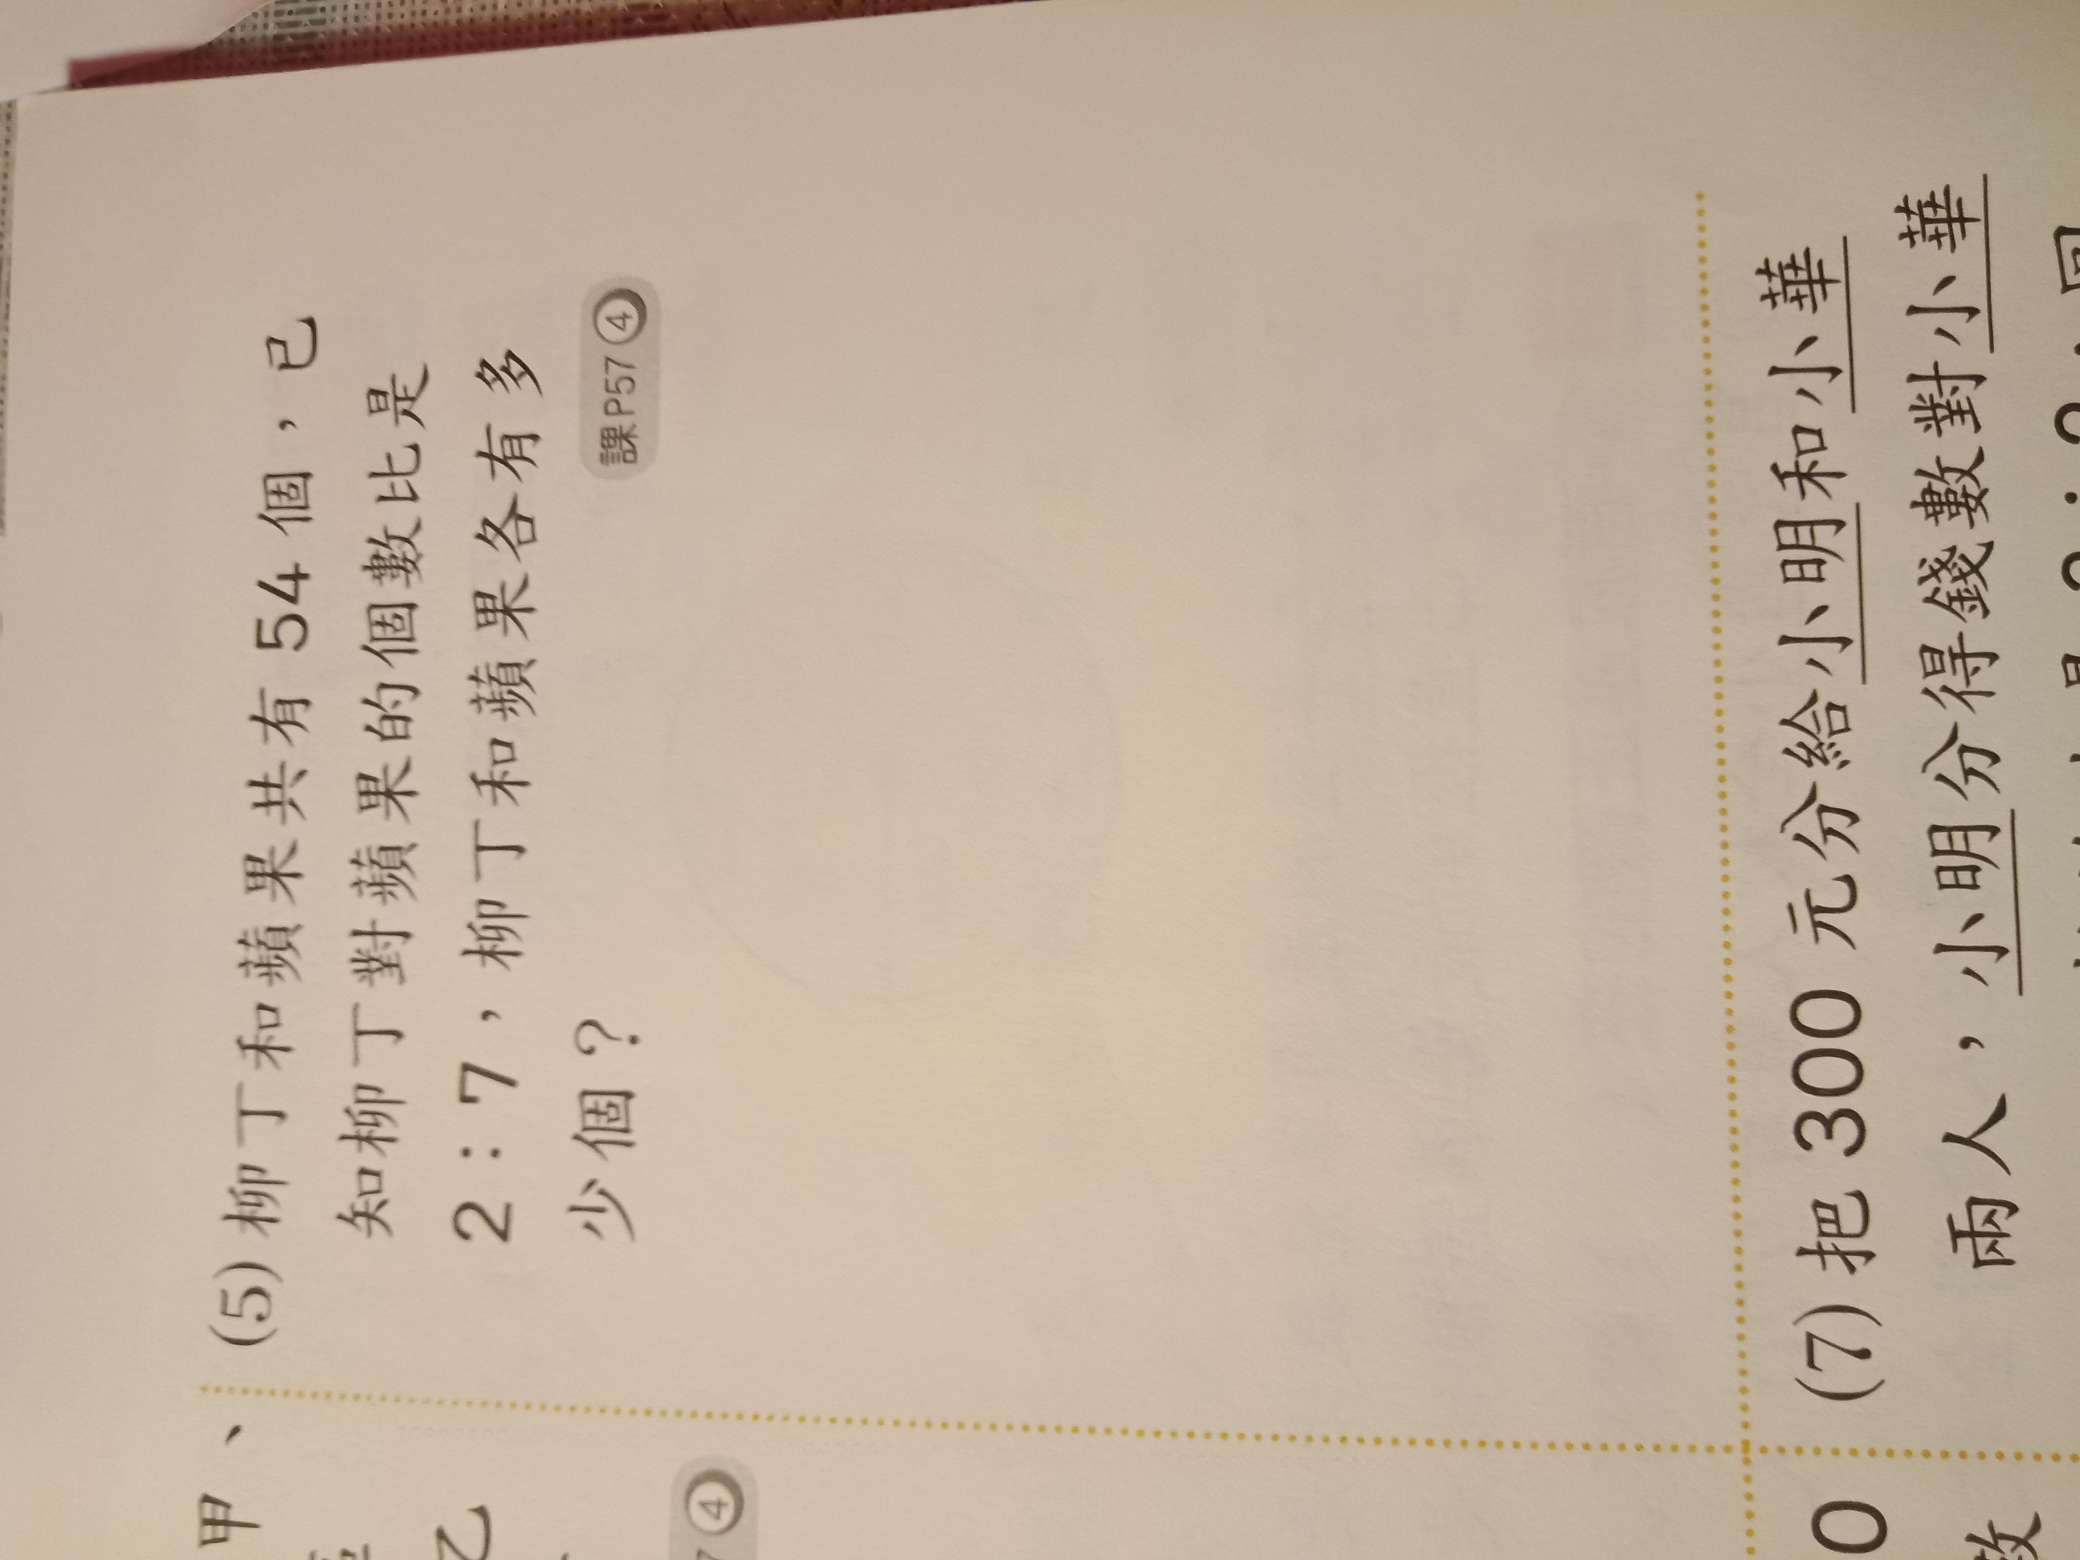 (5) 柳丁和蘋果共有 54 個，已
知柳丁對蘋果的個數比是
2：7，柳丁和蘋果各有多
少個？
課P57④
(7) 把 300 元分給小明和小華
兩人，小明分得錢數對小華
甲、
乙
④
0
数